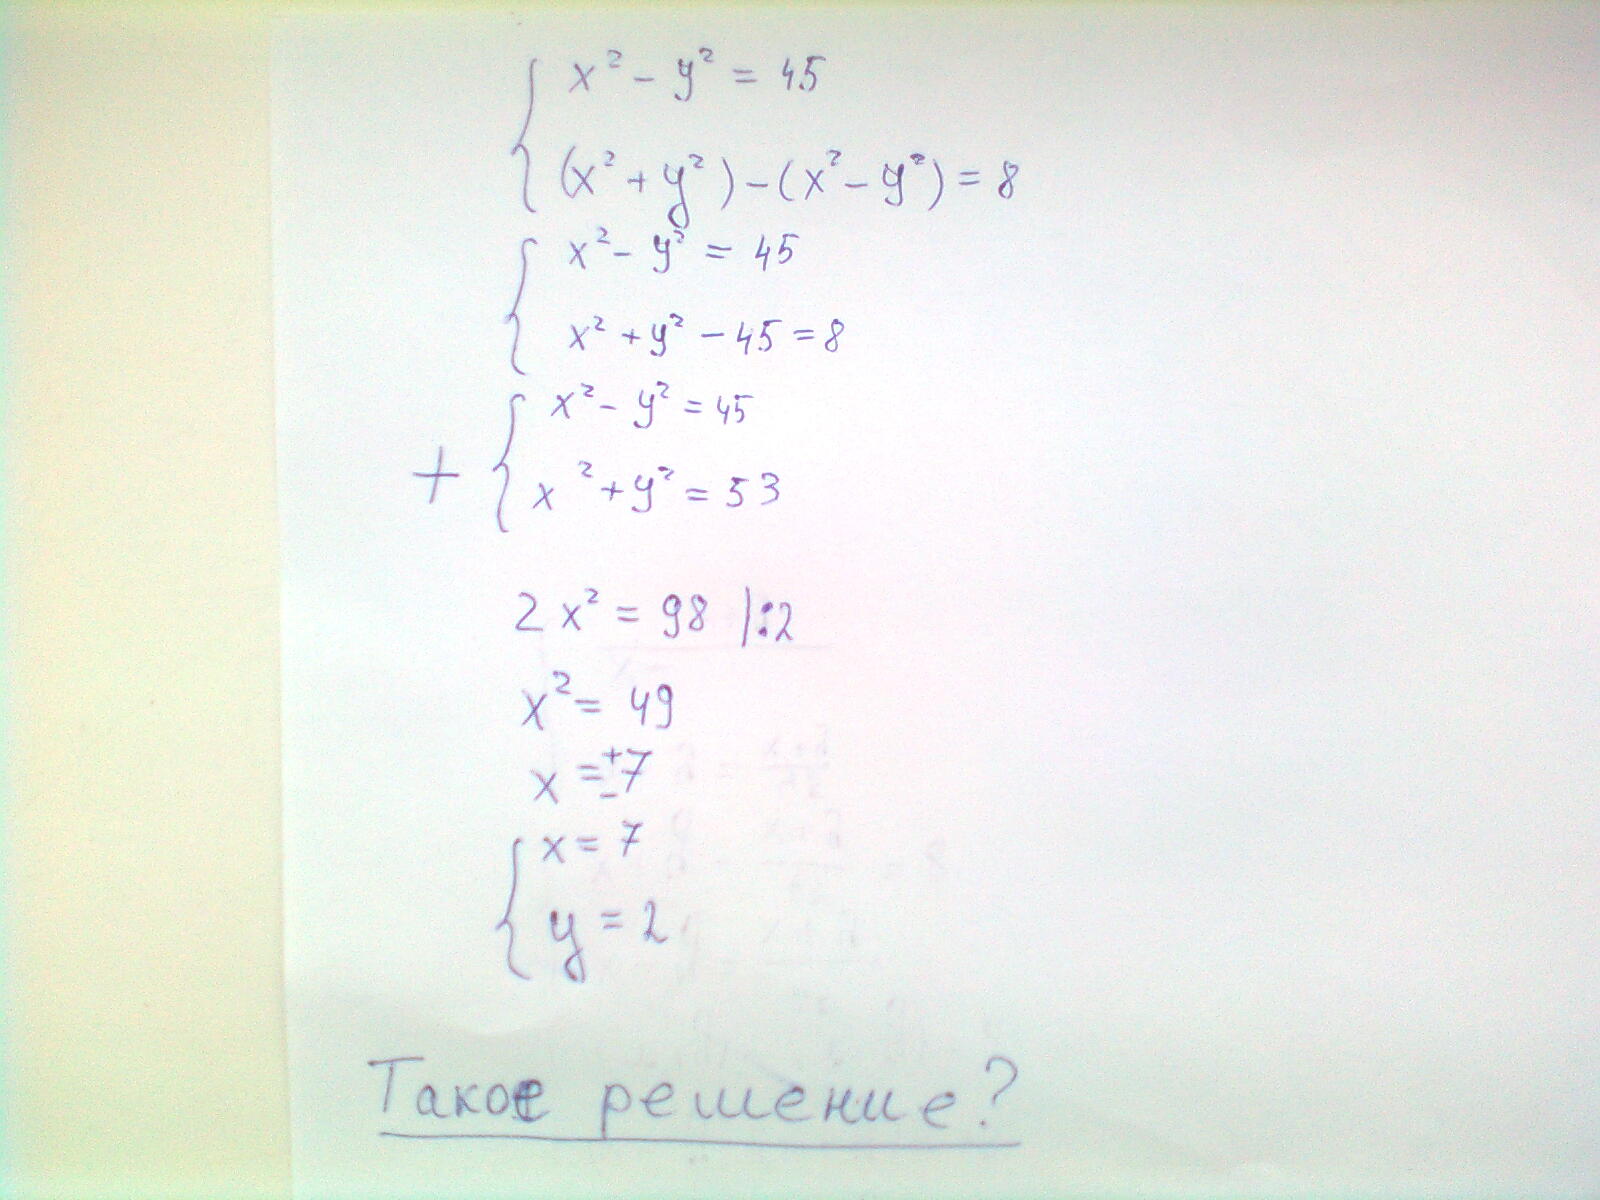 x² - y² = 45
(x² + y²) - (x² - y²) = 8
x² - y² = 45
x² + y² - 45 = 8
x² - y² = 45
+
x² + y² = 53
2x² = 98 |:2
x² = 49
x = ±7
x = 7
y = 2
Такое решение?